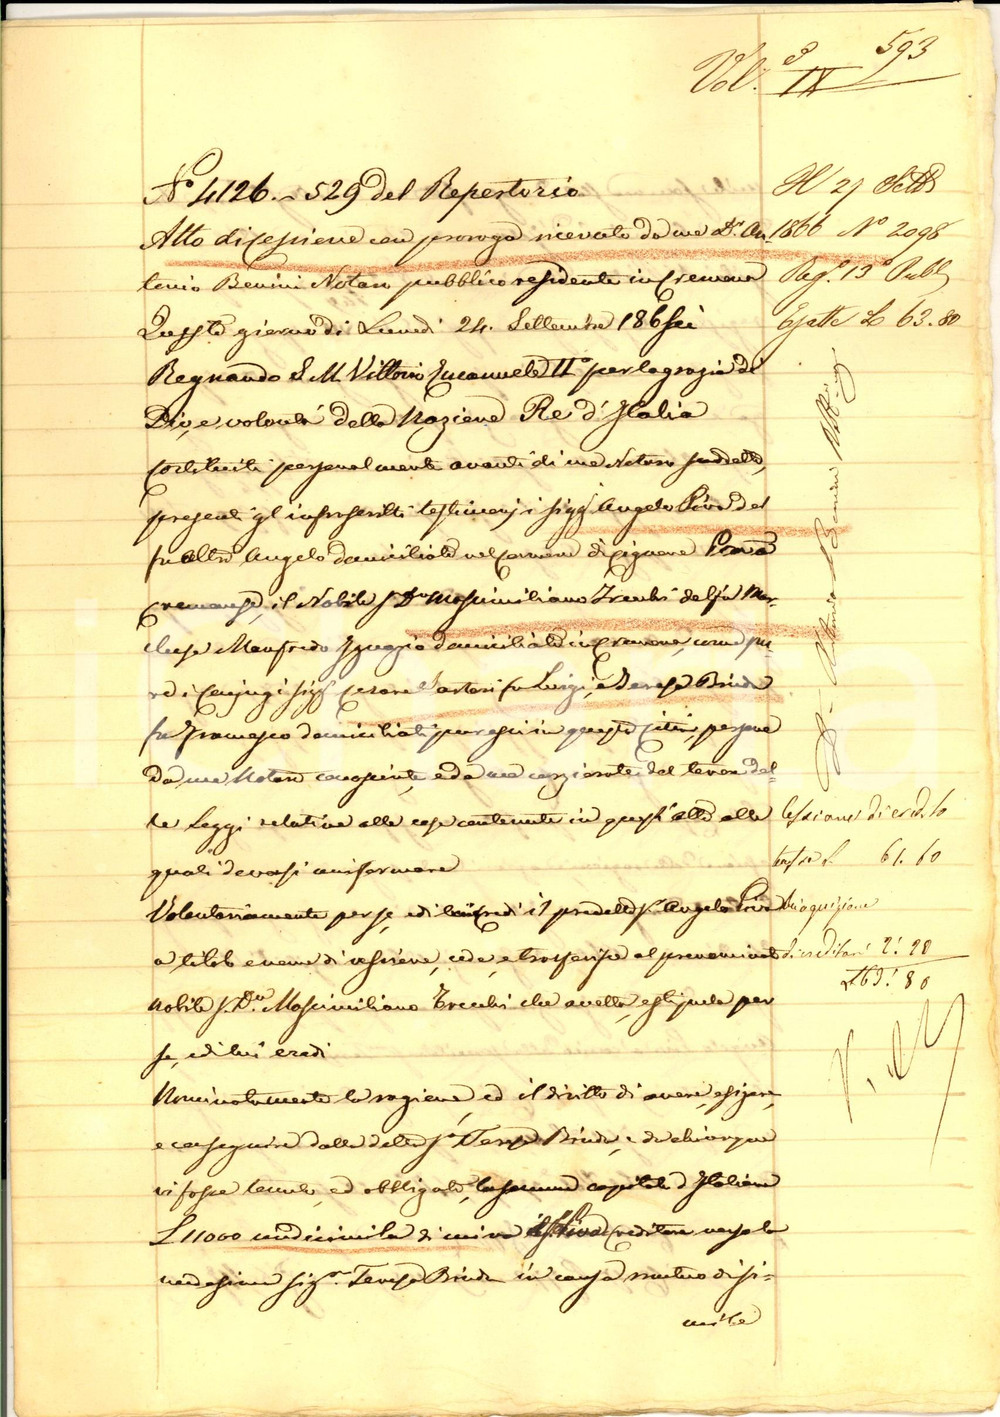 Vol. IX 593
N.° 4126.-529 del Repertorio
Atto di cessione con proroga ricevuto da me Dr. An-
tonio Benini Notaro pubblico residente in Cremona
Questo giorno di Lunedì 24. Settembre 186sei
Regnando S. M. Vittorio Emanuele II° per la grazia di
Dio, e volontà della Nazione Re d'Italia
Costituiti personalmente avanti di me Notaro suddetto,
presenti gl'infrascritti testimonj i sigg. Angelo Piva del
fu altro Angelo domiciliato nel Comune di
Cremonese, il Nobile S. Dr. Massimiliano Trecchi del fu Mar-
chese Manfredo Ignazio domiciliato in Cremona, come pu-
re i Conjugi Sigg. Cesare Sartori fu Luigi, e Teresa Binda
fu Francesco domiciliati pure in questa Città, persone
da me Notaro conosciute, e da me cerziorate del tenor del-
le Leggi relative alle cose contenute in quest'atto alle
quali devonsi uniformare
Volontariamente per se, ed il predetto S. Angelo Piva
a titolo e nome di cessione, cede, e trasferisce al prenominato
Nobile S. Dr. Massimiliano Trecchi che accetta, e stipula per
se, ed suoi eredi
Nominatamente la ragione, ed il diritto di avere, esigere,
e conseguire dalla detta S.a Teresa Binda, e da chiunque
vi fosse tenuto, ed obbligato, la somma capitale d'Italiane
£ 11000 undicimila di cui va il S. Piva Creditore verso la
medesima Sig.ra Teresa Binda in causa mutuo di si-
mile
Il 29 Settb
1866 N° 2098
Reg. 13° Pubbl
Esatte L 63.80
Cessione di credito
L. 61.60
2.20
63.80